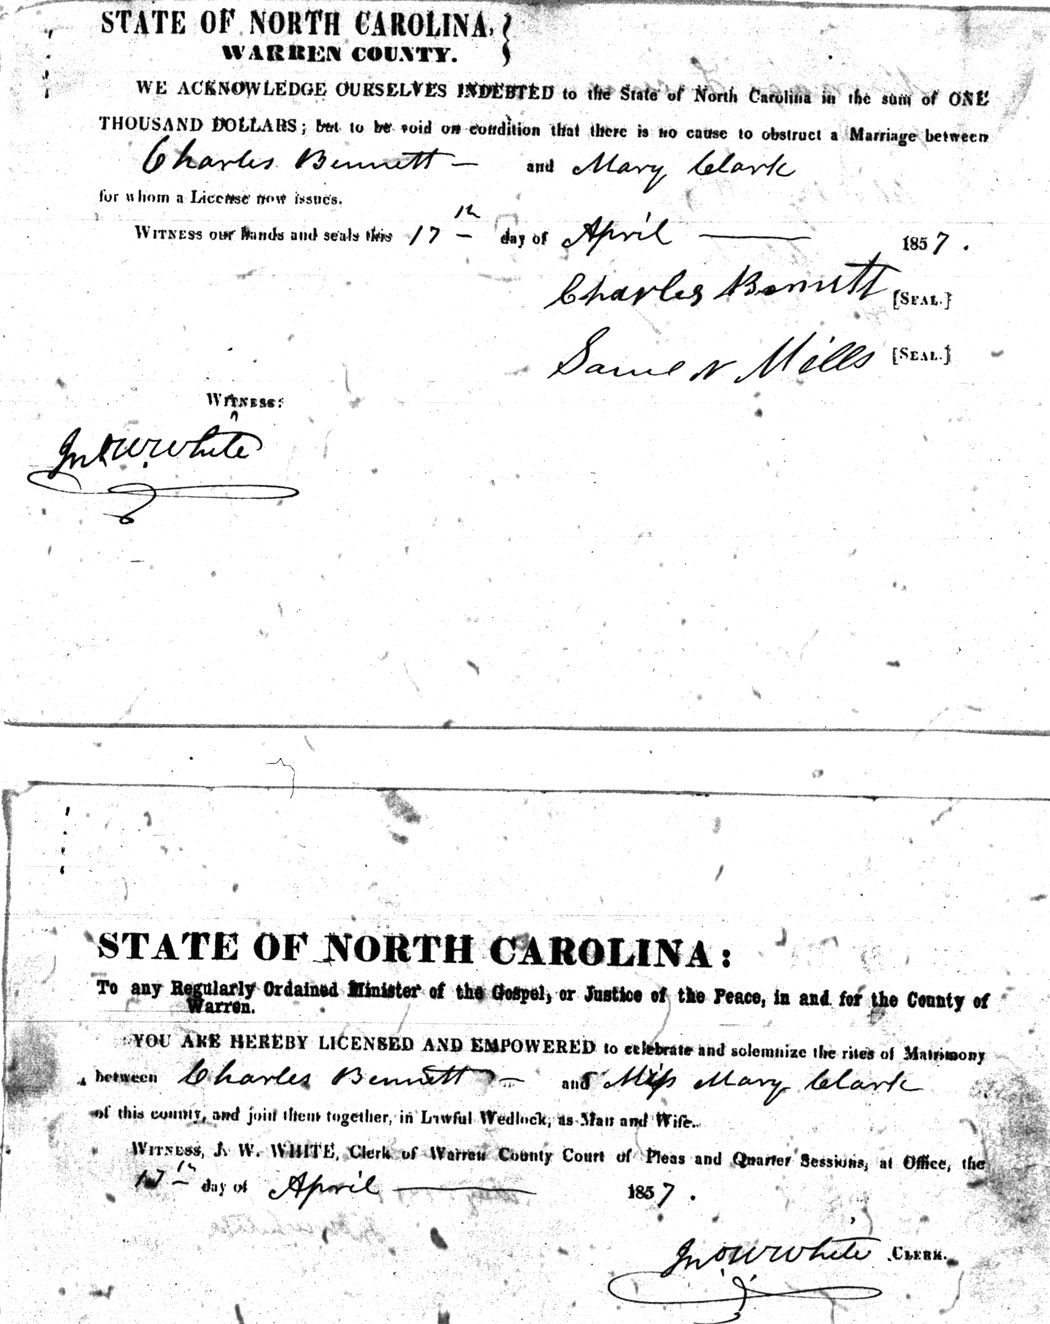 STATE OF NORTH CAROLINA,
WARREN COUNTY.
WE ACKNOWLEDGE OURSELVES INDEBTED to the State of North Carolina in the sum of ONE
THOUSAND DOLLARS; but to be void on condition that there is no cause to obstruct a Marriage between
Charles Bennett — and Mary Clark
for whom a License now issues.
WITNESS our hands and seals this 17th day of April — 1857.
Charles Bennett [SEAL.]
Saml N Mills [SEAL.]
WITNESS:
Jno W White
STATE OF NORTH CAROLINA:
To any Regularly Ordained Minister of the Gospel, or Justice of the Peace, in and for the County of
Warren.
YOU ARE HEREBY LICENSED AND EMPOWERED to celebrate and solemnize the rites of Matrimony
between Charles Bennett — and Miss Mary Clark
of this county, and join them together, in Lawful Wedlock, as Man and Wife.
WITNESS, J. W. WHITE, Clerk of Warren County Court of Pleas and Quarter Sessions, at Office, the
17th day of April — 1857.
Jno W White CLERK.